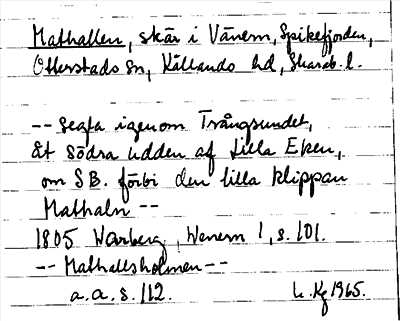 Mathallen, skär i Vänern, Spikefjorden,
Otterstads sn, Kållands hd, Skarab. l.
-- segla igenom Trångsundet,
åt Södra udden af Lilla Eken,
om SB. förbi den lilla klippan
Mathaln --
1805 Warberg, Wenern 1, s. 101.
-- Mathallsholmen --
a. a. s. 112.
1965.